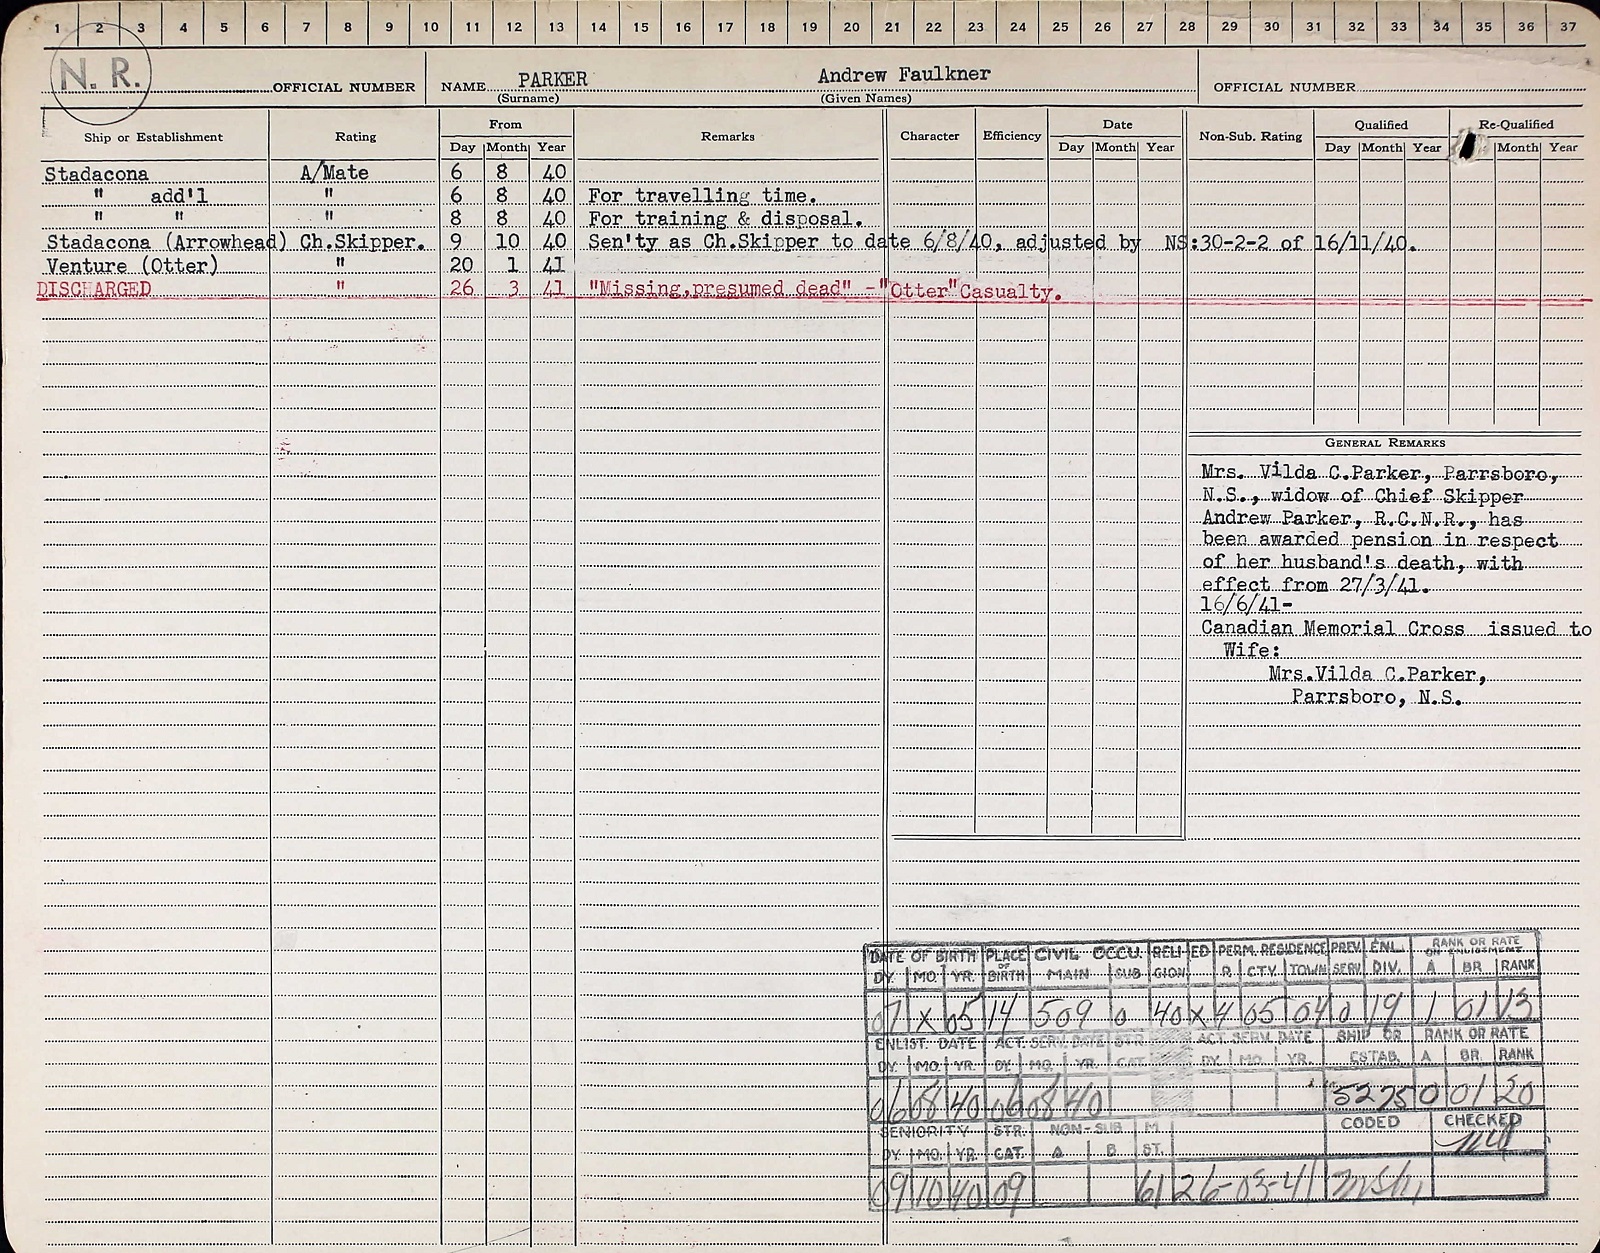 1 2 3 4 5 6 7 8 9 10 11 12 13 14 15 16 17 18 19 20 21 22 23 24 25 26 27 28 29 30 31 32 33 34 35 36 37
N. R. OFFICIAL NUMBER NAME PARKER Andrew Faulkner OFFICIAL NUMBER
(Surname) (Given Names)
Ship or Establishment Rating From Remarks Character Efficiency Date Non-Sub. Rating Qualified Re-Qualified
Day Month Year Day Month Year Day Month Year Month Year
Stadacona A/Mate 6 8 40
" add'l " 6 8 40 For travelling time.
" " " 8 8 40 For training & disposal.
Stadacona (Arrowhead) Ch.Skipper. 9 10 40 Sen'ty as Ch.Skipper to date 6/8/40, adjusted by NS:30-2-2 of 16/11/40.
Venture (Otter) " 20 1 41
DISCHARGED " 26 3 41 "Missing,presumed dead" -"Otter"Casualty.
GENERAL REMARKS
Mrs. Vilda C.Parker, Parrsboro,
N.S., widow of Chief Skipper
Andrew Parker, R.C.N.R., has
been awarded pension in respect
of her husband's death, with
effect from 27/3/41.
16/6/41-
Canadian Memorial Cross issued to
Wife:
Mrs.Vilda C.Parker,
Parrsboro, N.S.
DATE OF BIRTH PLACE OF BIRTH CIVIL OCCU. RELIGION ED PERM. RESIDENCE PREV. SERV. ENL. DIV. RANK OR RATE ON ENLISTMENT
DY. MO. YR. MAIN SUB R. CTY. TOWN A BR RANK
07 X 05 14 509 0 40 X 4 05 04 0 19 1 01 13
ENLIST. DATE ACT. SERV. DATE STR. CAT. ACT. SERV. DATE SHIP OR ESTAB. RANK OR RATE
DY. MO. YR. DY. MO. YR. DY. MO. YR. A BR. RANK
06 08 40 06 08 40 5275 0 01 20
SENIORITY STR. CAT. NON-SUB M ST. CODED CHECKED
DY. MO. YR. A B
09 10 40 09 61 26-03-41